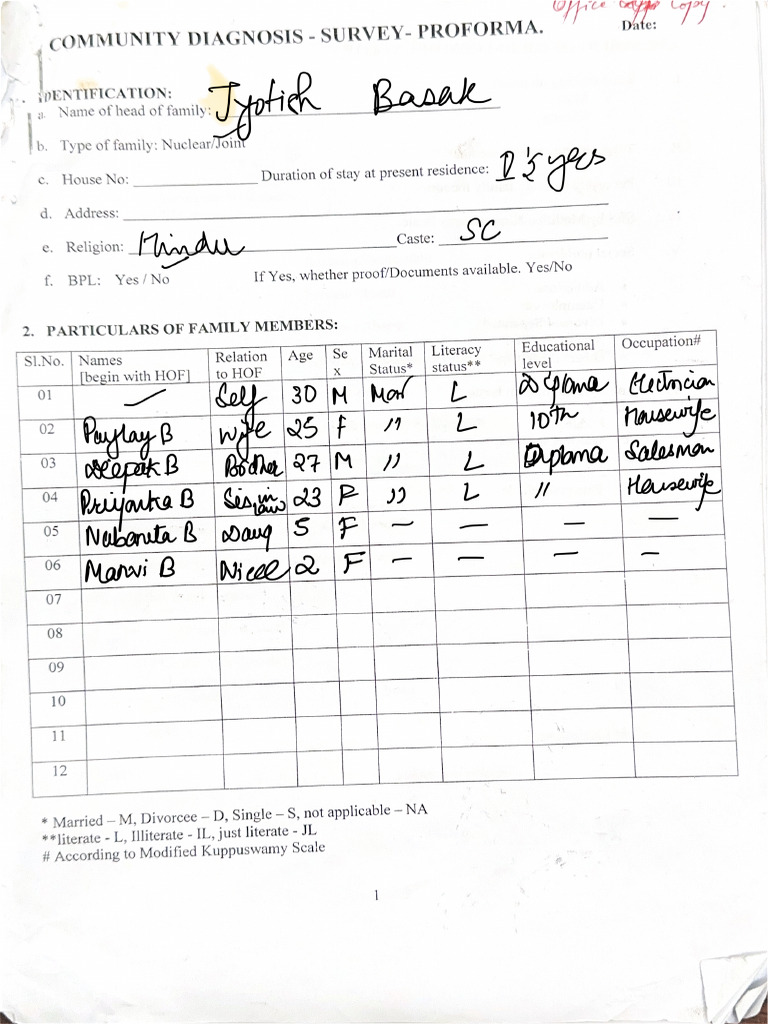 Office Copy
COMMUNITY DIAGNOSIS - SURVEY- PROFORMA. Date:
IDENTIFICATION:
a. Name of head of family: Jyotish Basak
b. Type of family: Nuclear/Joint
c. House No: Duration of stay at present residence:
d. Address:
e. Religion: Hindu Caste: SC
f. BPL: Yes / No If Yes, whether proof/Documents available. Yes/No
2. PARTICULARS OF FAMILY MEMBERS:
Sl.No. Names [begin with HOF] Relation to HOF Age Sex Marital Status* Literacy status** Educational level Occupation#
01 Self 30 M Mar L Diploma Electrician
02 B Wife 25 F " L 10th Housewife
03 Deepak B Brother 27 M " L Diploma Salesman
04 Priyanka B Sis in law 23 F " L " Housewife
05 Nabanita B Daug 5 F — — — —
06 Manvi B Niece 2 F — — — —
07
08
09
10
11
12
* Married – M, Divorcee – D, Single – S, not applicable – NA
**literate - L, Illiterate - IL, just literate - JL
# According to Modified Kuppuswamy Scale
1